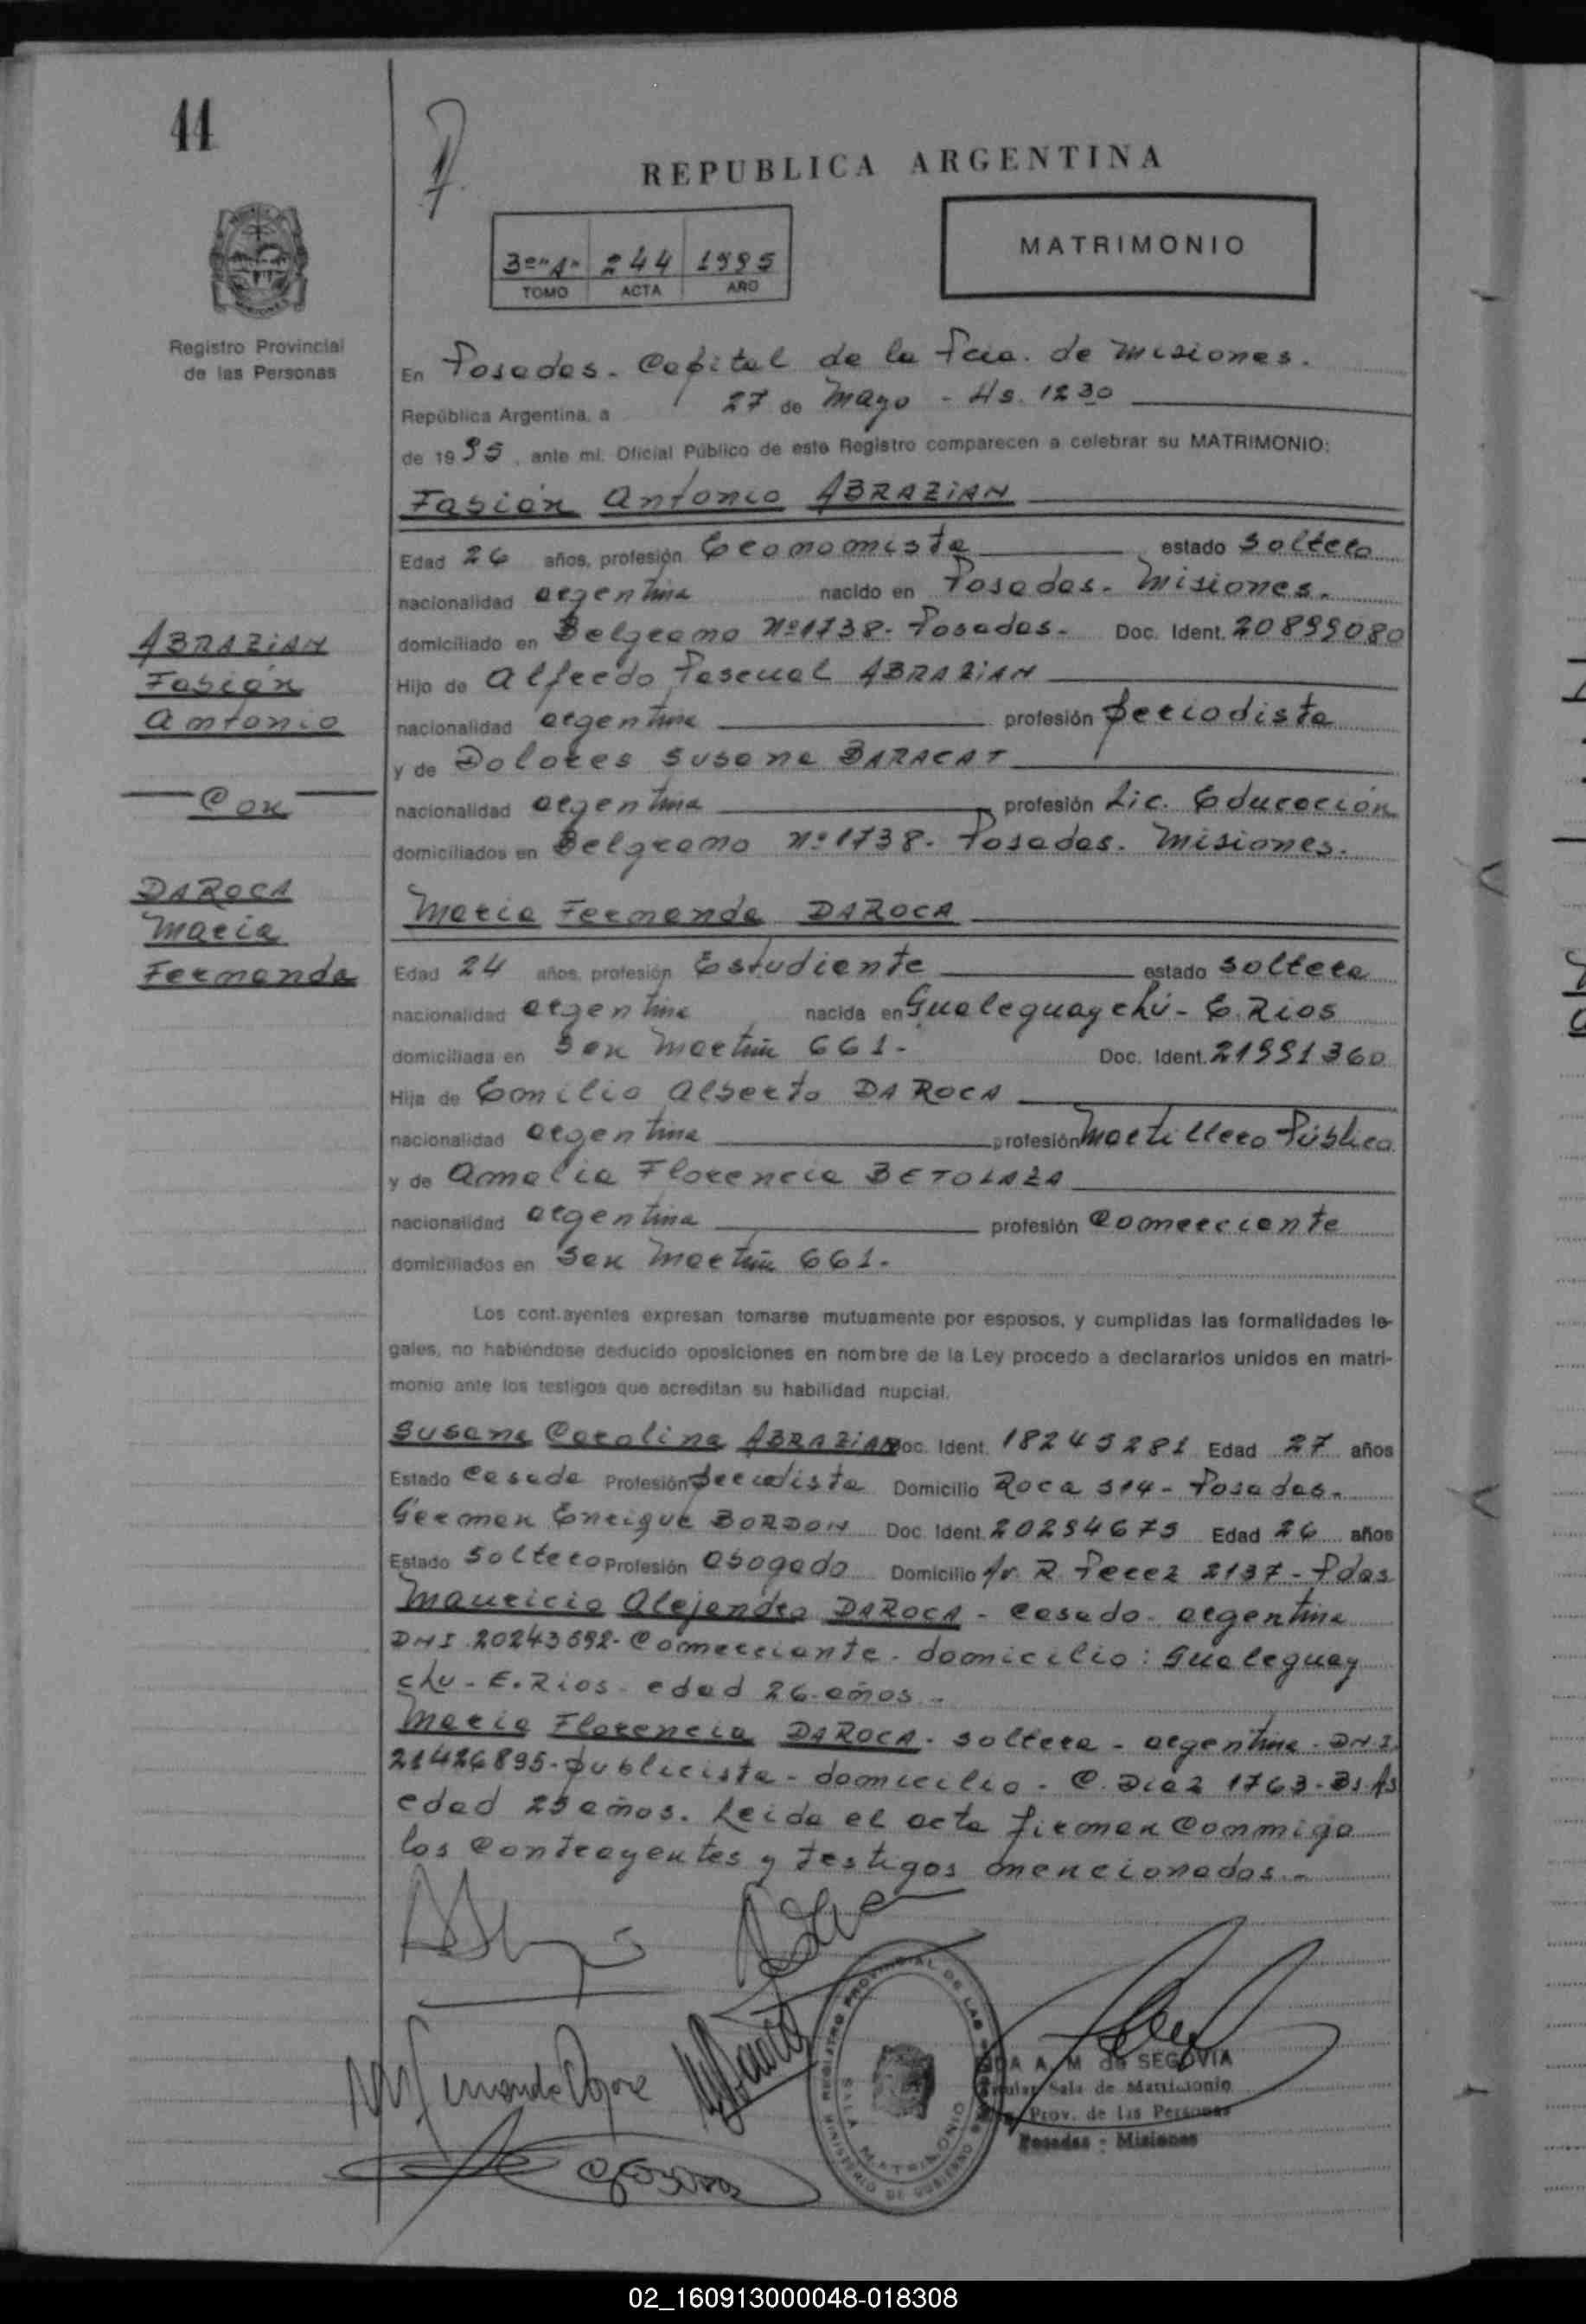 44
REPUBLICA ARGENTINA
3º "A" 244 1995
TOMO ACTA AÑO
MATRIMONIO
Registro Provincial
de las Personas
En Posadas - Capital de la Pcia. de Misiones.
República Argentina, a 27 de Mayo - Hs. 12 30
de 1995, ante mí, Oficial Público de este Registro comparecen a celebrar su MATRIMONIO:
Fabián Antonio ABRAZIAN
Edad 26 años, profesión Economista estado Soltero
nacionalidad argentina nacido en Posadas - Misiones.
domiciliado en Belgrano Nº 1738 - Posadas - Doc. Ident. 20899080
Hijo de Alfredo Pascual ABRAZIAN
nacionalidad argentina profesión periodista
y de Dolores Susana BARACAT
nacionalidad argentina profesión Lic. Educación
domiciliados en Belgrano Nº 1738 - Posadas. Misiones.
ABRAZIAN
Fabián
Antonio
Con
DAROCA
María
Fernanda
María Fernanda DAROCA
Edad 24 años, profesión Estudiante estado soltera
nacionalidad argentina nacida en Gualeguaychú - E. Rios
domiciliada en San Martín 661 - Doc. Ident. 21991360
Hija de Emilio Alberto DAROCA
nacionalidad argentina profesión Martillero Público
y de Amalia Florencia BETOLAZA
nacionalidad argentina profesión Comerciante
domiciliados en San Martín 661 -
Los cont.ayentes expresan tomarse mutuamente por esposos, y cumplidas las formalidades le-
gales, no habiéndose deducido oposiciones en nombre de la Ley procedo a declararlos unidos en matri-
monio ante los testigos que acreditan su habilidad nupcial.
Susana Carolina ABRAZIAN Doc. Ident. 18245281 Edad 27 años
Estado Casada Profesión periodista Domicilio Roca 514 - Posadas -
German Enrique BORDON Doc. Ident. 20294675 Edad 26 años
Estado Soltero Profesión Abogado Domicilio Av. R. Perez 2137 - Pdas
Mauricio Alejandro DAROCA - casado - argentina
DNI 20243592 - Comerciante - domicilio: Gualeguay
chu - E. Rios - edad 26 - años -
María Florencia DAROCA - soltera - argentina - DNI.
21426895 - publicista - domicilio - C. Diaz 1763 - Bs. As
edad 25 años. Leida el acta firman conmigo
los contrayentes y testigos mencionados. -
REGISTRO PROVINCIAL DE LAS
SALA MATRIMONIO
MINISTERIO DE GOBIERNO
A. M de SEGOVIA
Titular Sala de Matrimonio
Prov. de las Personas
Posadas - Misiones
02_160913000048-018308